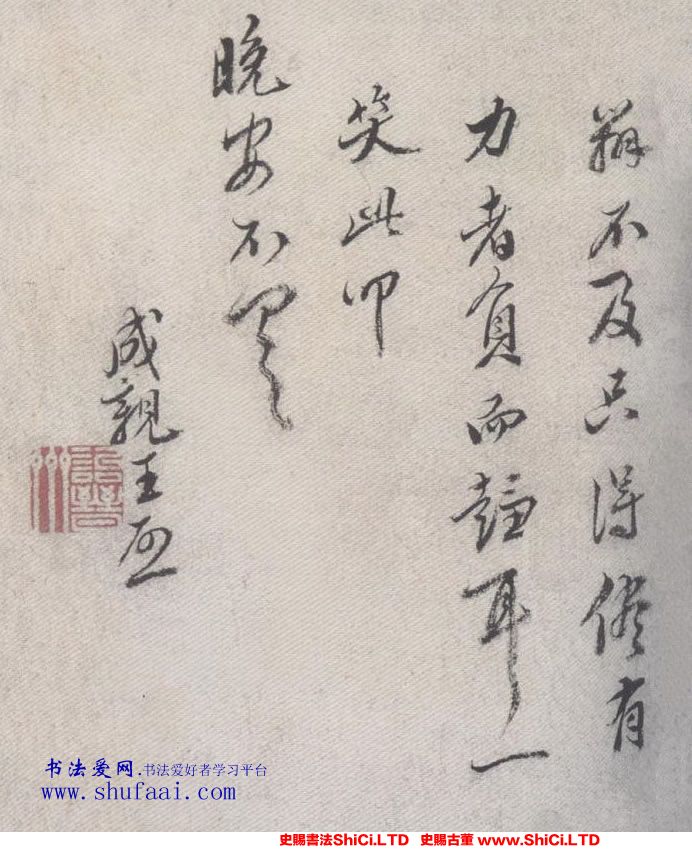 辦不及只得儘有
力者負而趨耳一
笑此叩
晚安不
成親王
书法爱网.书法爱好者学习平台
www.shufaai.com
史賜書法ShiCi.LTD 史賜古董 www.ShiCi.LTD